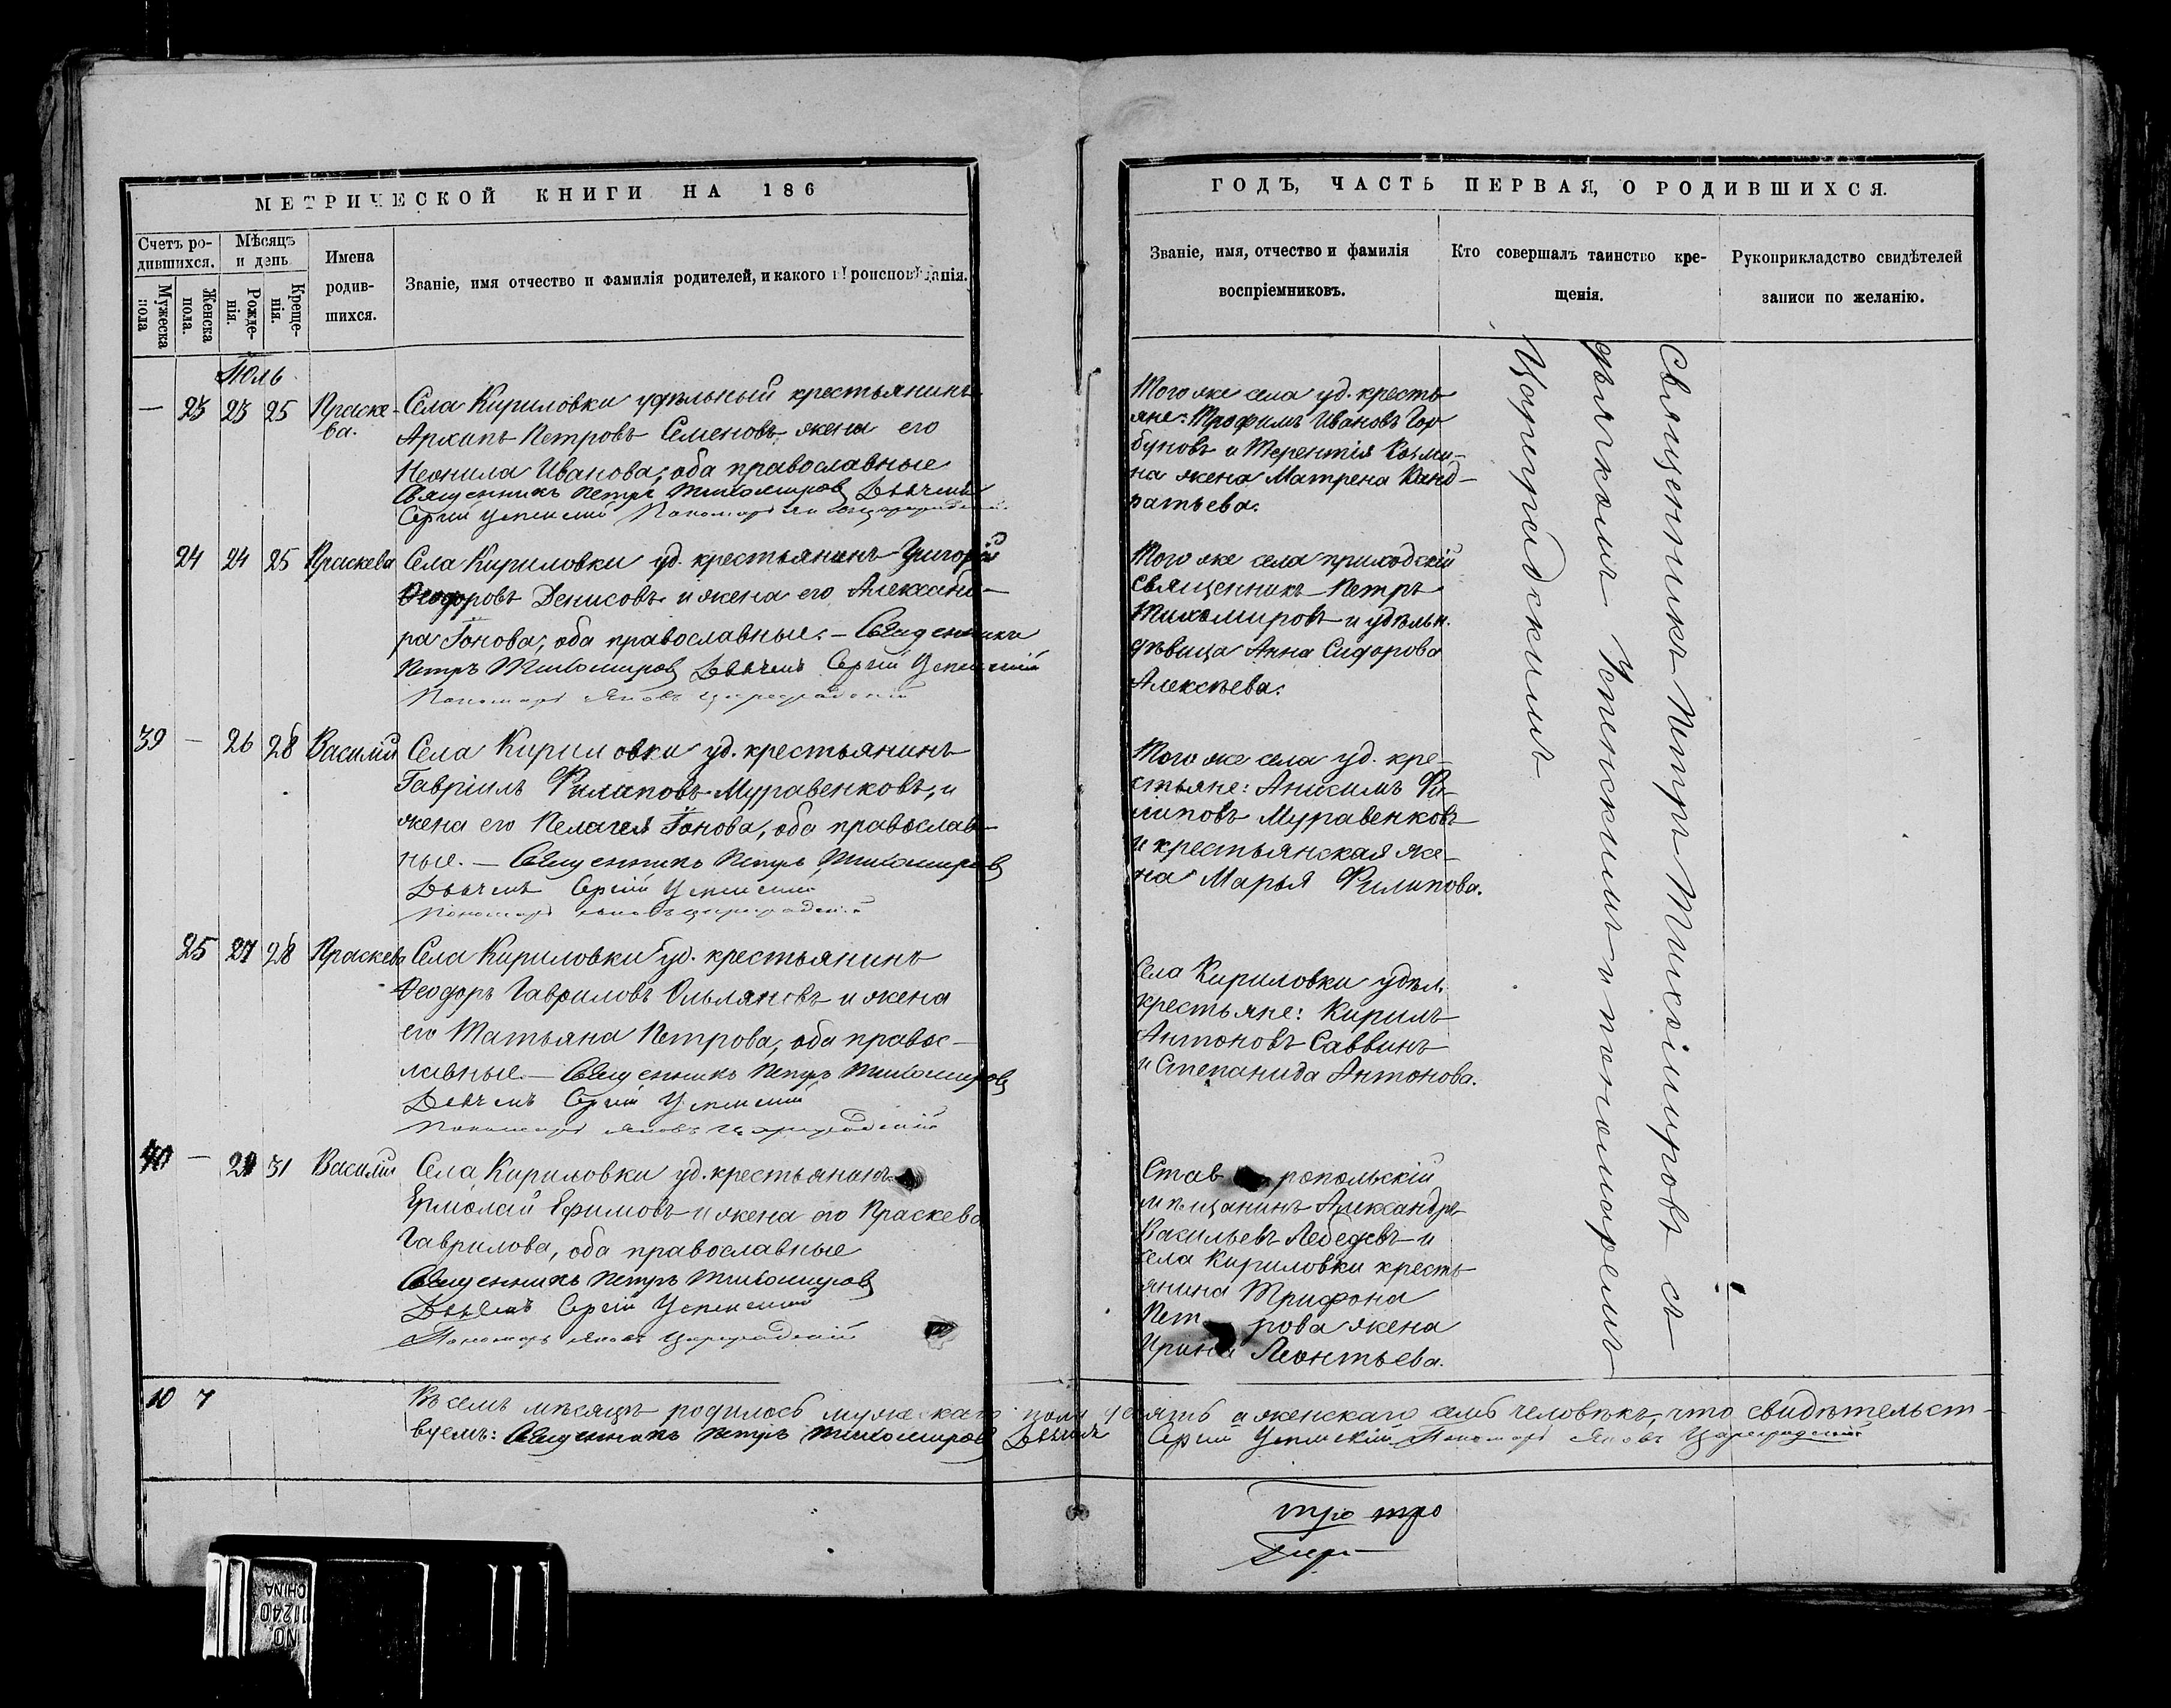 МЕТРИЧЕСКОЙ КНИГИ НА 186
Счетъ ро-
дившихся.
Мужеска
пола
Женска
пола.
Мѣсяцъ
и день
Рожде-
нія.
Креще-
нія.
Имена
родив-
шихся.
Званіе, имя отчество и фамилія родителей, и какого вѣроисповѣданія.
Іюль
— 23 23 25 Праске-
ва.
Села Кириловки удѣльный крестьянинъ
Архипъ Петровъ Семеновъ, жена его
Неонила Иванова, оба православные
Священникъ Петръ Тихомировъ Дьячекъ
Сергій Успенскій Пономарь Яковъ Цареградскій
24 24 25 Праскева
Села Кириловки уд. крестьянинъ Григорій
Ѳеодоровъ Денисовъ и жена его Александ-
ра Іонова, оба православные. — Священникъ
Петръ Тихомировъ Дьячекъ Сергій Успенскій
Пономарь Яковъ Цареградскій
39 — 26 28 Василій
Села Кириловки уд. крестьянинъ
Гавріилъ Филиповъ Муравенковъ, и
жена его Пелагея Іонова, оба православ-
ные. — Священникъ Петръ Тихомировъ
Дьячекъ Сергій Успенскій
Пономарь Яковъ Цареградскій
25 27 28 Праскева
Села Кириловки уд. крестьянинъ
Ѳеодоръ Гавриловъ Ольляновъ и жена
его Татьяна Петрова, оба правос-
лавные — Священникъ Петръ Тихомировъ
Дьячекъ Сергій Успенскій
Пономарь Яковъ Цареградскій
40 — 29 31 Василій
Села Кириловки уд. крестьянинъ
Ермолай Ефимовъ и жена его Праскева
Гаврилова, оба православные
Священникъ Петръ Тихомировъ
Дьячекъ Сергій Успенскій
Пономарь Яковъ Цареградскій
10 7
Въ семъ мѣсяцѣ родилось мужескаго пола десять а женскаго семь человѣкъ, что свидѣтельст-
вуемъ: Священникъ Петръ Тихомировъ Дьячекъ Сергій Успенскій Пономарь Яковъ Цареградскій
ГОДЪ, ЧАСТЬ ПЕРВАЯ, О РОДИВШИХСЯ.
Званіе, имя, отчество и фамилія
воспріемниковъ.
Кто совершалъ таинство кре-
щенія.
Рукоприкладство свидѣтелей
записи по желанію.
Того же села уд. кресть-
яне: Трофимъ Ивановъ Гор-
буновъ и Терентія Козми-
на жена Матрена Канд-
ратьева.
Того же села приходскій
священникъ Петръ
Тихомировъ и удѣльн.
дѣвица Анна Сидорова
Алексѣева.
Того же села уд. кре-
стьяне: Анисимъ Фи-
липовъ Муравенковъ
и крестьянская же-
на Марья Филипова.
Села Кириловки удѣл.
крестьяне: Кирилъ
Антоновъ Саввинъ
и Степанида Антонова.
Став ропольскій
мѣщанинъ Александръ
Васильевъ Лебедевъ и
села Кириловки кресть-
янина Трифона
Пет рова жена
Ирина Леонтьева.
Священникъ Петръ Тихомировъ съ
дьячкомъ Успенскимъ и пономаремъ
Цареградскимъ
NO. 11240
CHINA